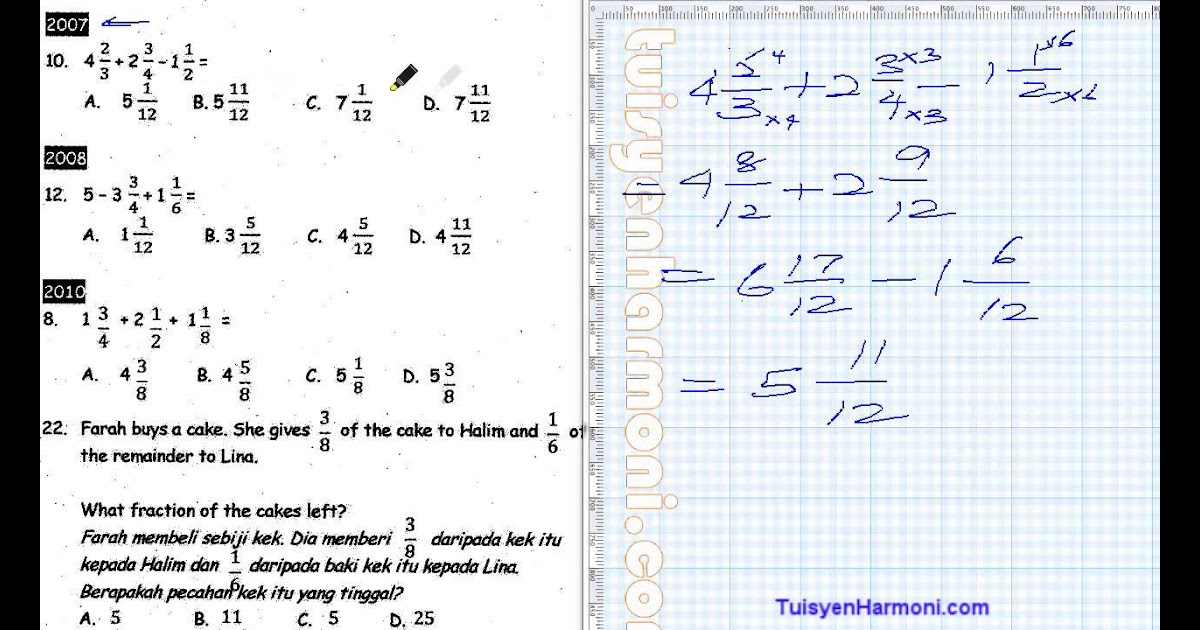 2007
10. 4 2/3 + 2 3/4 - 1 1/2 =
A. 5 1/12 B. 5 11/12 C. 7 1/12 D. 7 11/12
2008
12. 5 - 3 3/4 + 1 1/6 =
A. 1 1/12 B. 3 5/12 C. 4 5/12 D. 4 11/12
2010
8. 1 3/4 + 2 1/2 + 1 1/8 =
A. 4 3/8 B. 4 5/8 C. 5 1/8 D. 5 3/8
22. Farah buys a cake. She gives 3/8 of the cake to Halim and 1/6 of
the remainder to Lina.
What fraction of the cakes left?
Farah membeli sebiji kek. Dia memberi 3/8 daripada kek itu
kepada Halim dan 1/6 daripada baki kek itu kepada Lina.
Berapakah pecahan kek itu yang tinggal?
A. 5 B. 11 C. 5 D. 25
tuisyenharmoni.co
+ 2 3×3/4×3 -
= 4 8/12 + 2 9/12
= 6 17/12 - 1 6/12
= 5 11/12
TuisyenHarmoni.com